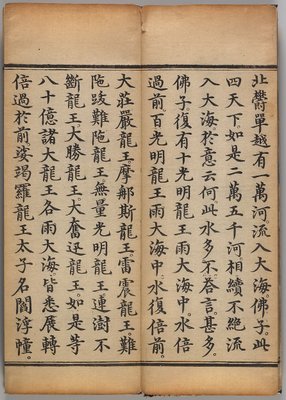 北鬱單越有一萬河。流入大海。佛子。此
四天下如是二萬五千河相續不絕流
入大海。於意云何。此水多不。荅言。甚多。
佛子。復有十光明龍王雨大海中。水倍
過前。百光明龍王雨大海中。水復倍前。
大莊嚴龍王。摩那斯龍王。雷震龍王。難
陁跋難陁龍王。無量光明龍王。連澍不
斷龍王。大勝龍王。大奮迅龍王。如是等
八十億諸大龍王各雨大海皆悉展轉
倍過於前。娑竭羅龍王太子名閻浮幢。